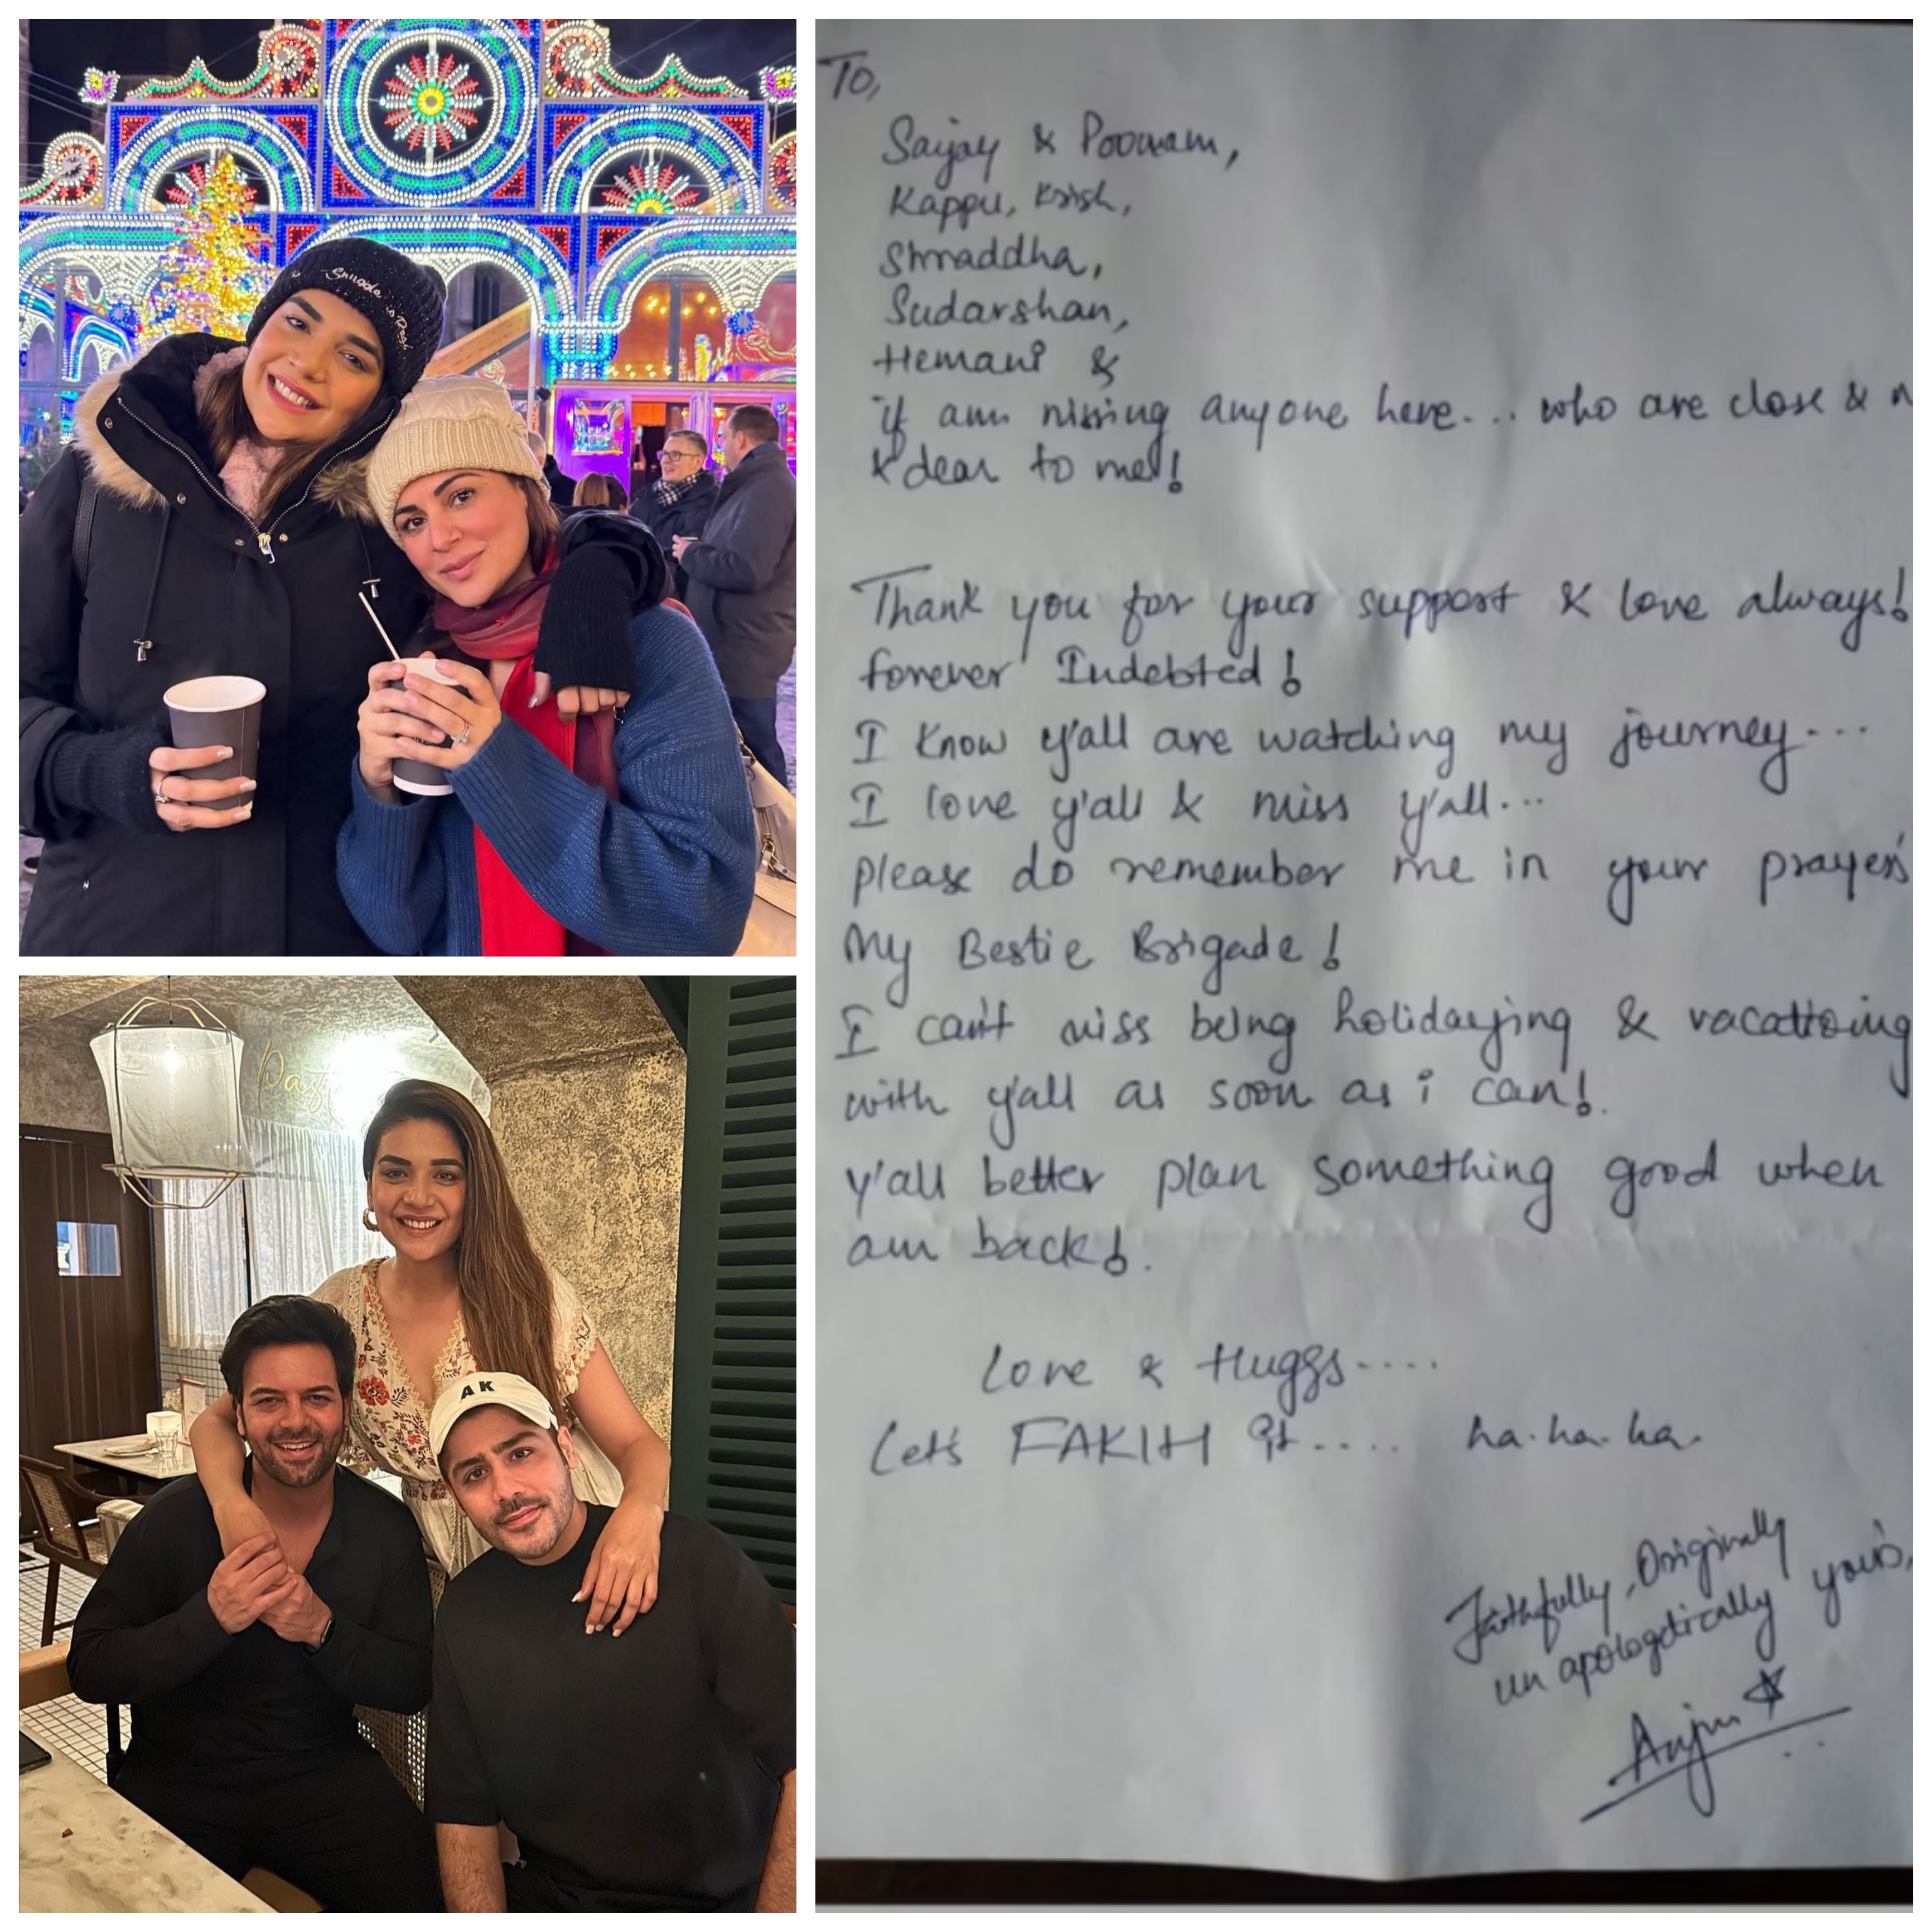 Snuggle is Real
Past
AK
To,
Sanjay & Poonam,
Kappu, Krish,
Shraddha,
Sudarshan,
Hemani &
if am missing anyone here... who are close & n
& dear to me!
Thank you for your support & love always!
forever Indebted!
I know y'all are watching my journey...
I love y'all & miss y'all...
please do remember me in your prayers
My Bestie Brigade!
I can't miss being holidaying & vacationing
with y'all as soon as i can!.
y'all better plan something good when
am back!.
Love & Huggs....
Let's FAKIH it.... ha.ha.ha.
Faithfully, Originally
un apologetically your's,
Anjum